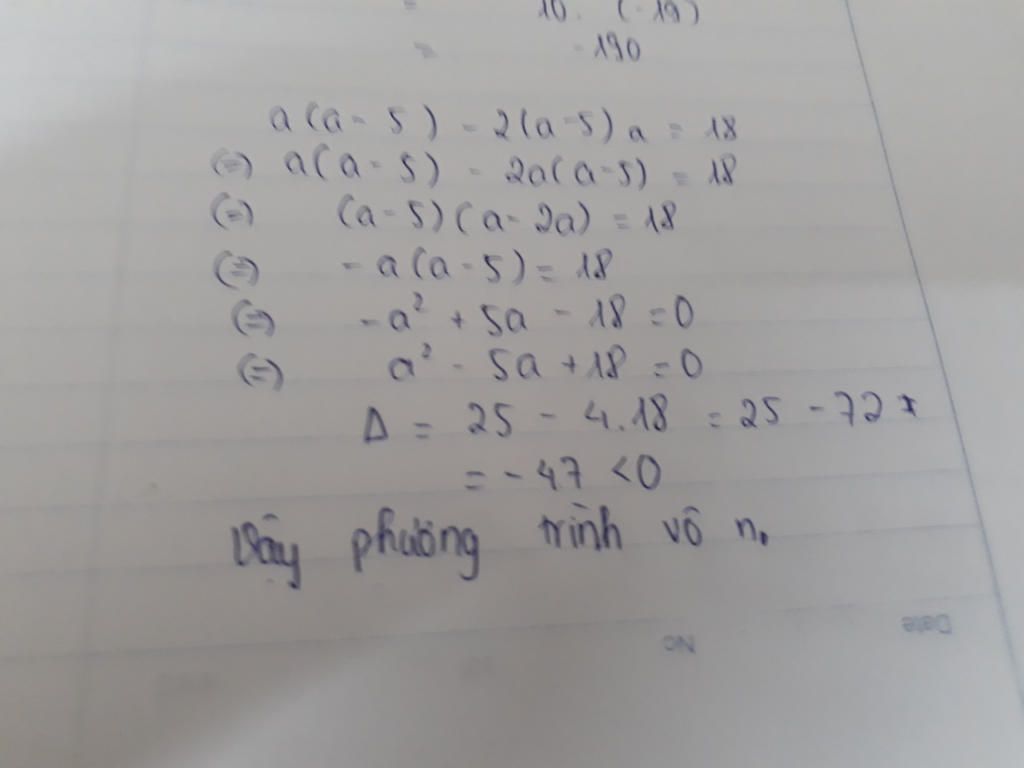 = 10. (-19)
= -190
a(a - 5) - 2(a-5)a = 18
(=) a(a - 5) - 2a(a-5) = 18
(=) (a-5)(a-2a) = 18
(=) -a(a-5) = 18
(=) -a² + 5a - 18 = 0
(=) a² - 5a + 18 = 0
Δ = 25 - 4.18 = 25 - 72
= -47 <0
Vậy phương trình vô n.
No
Date